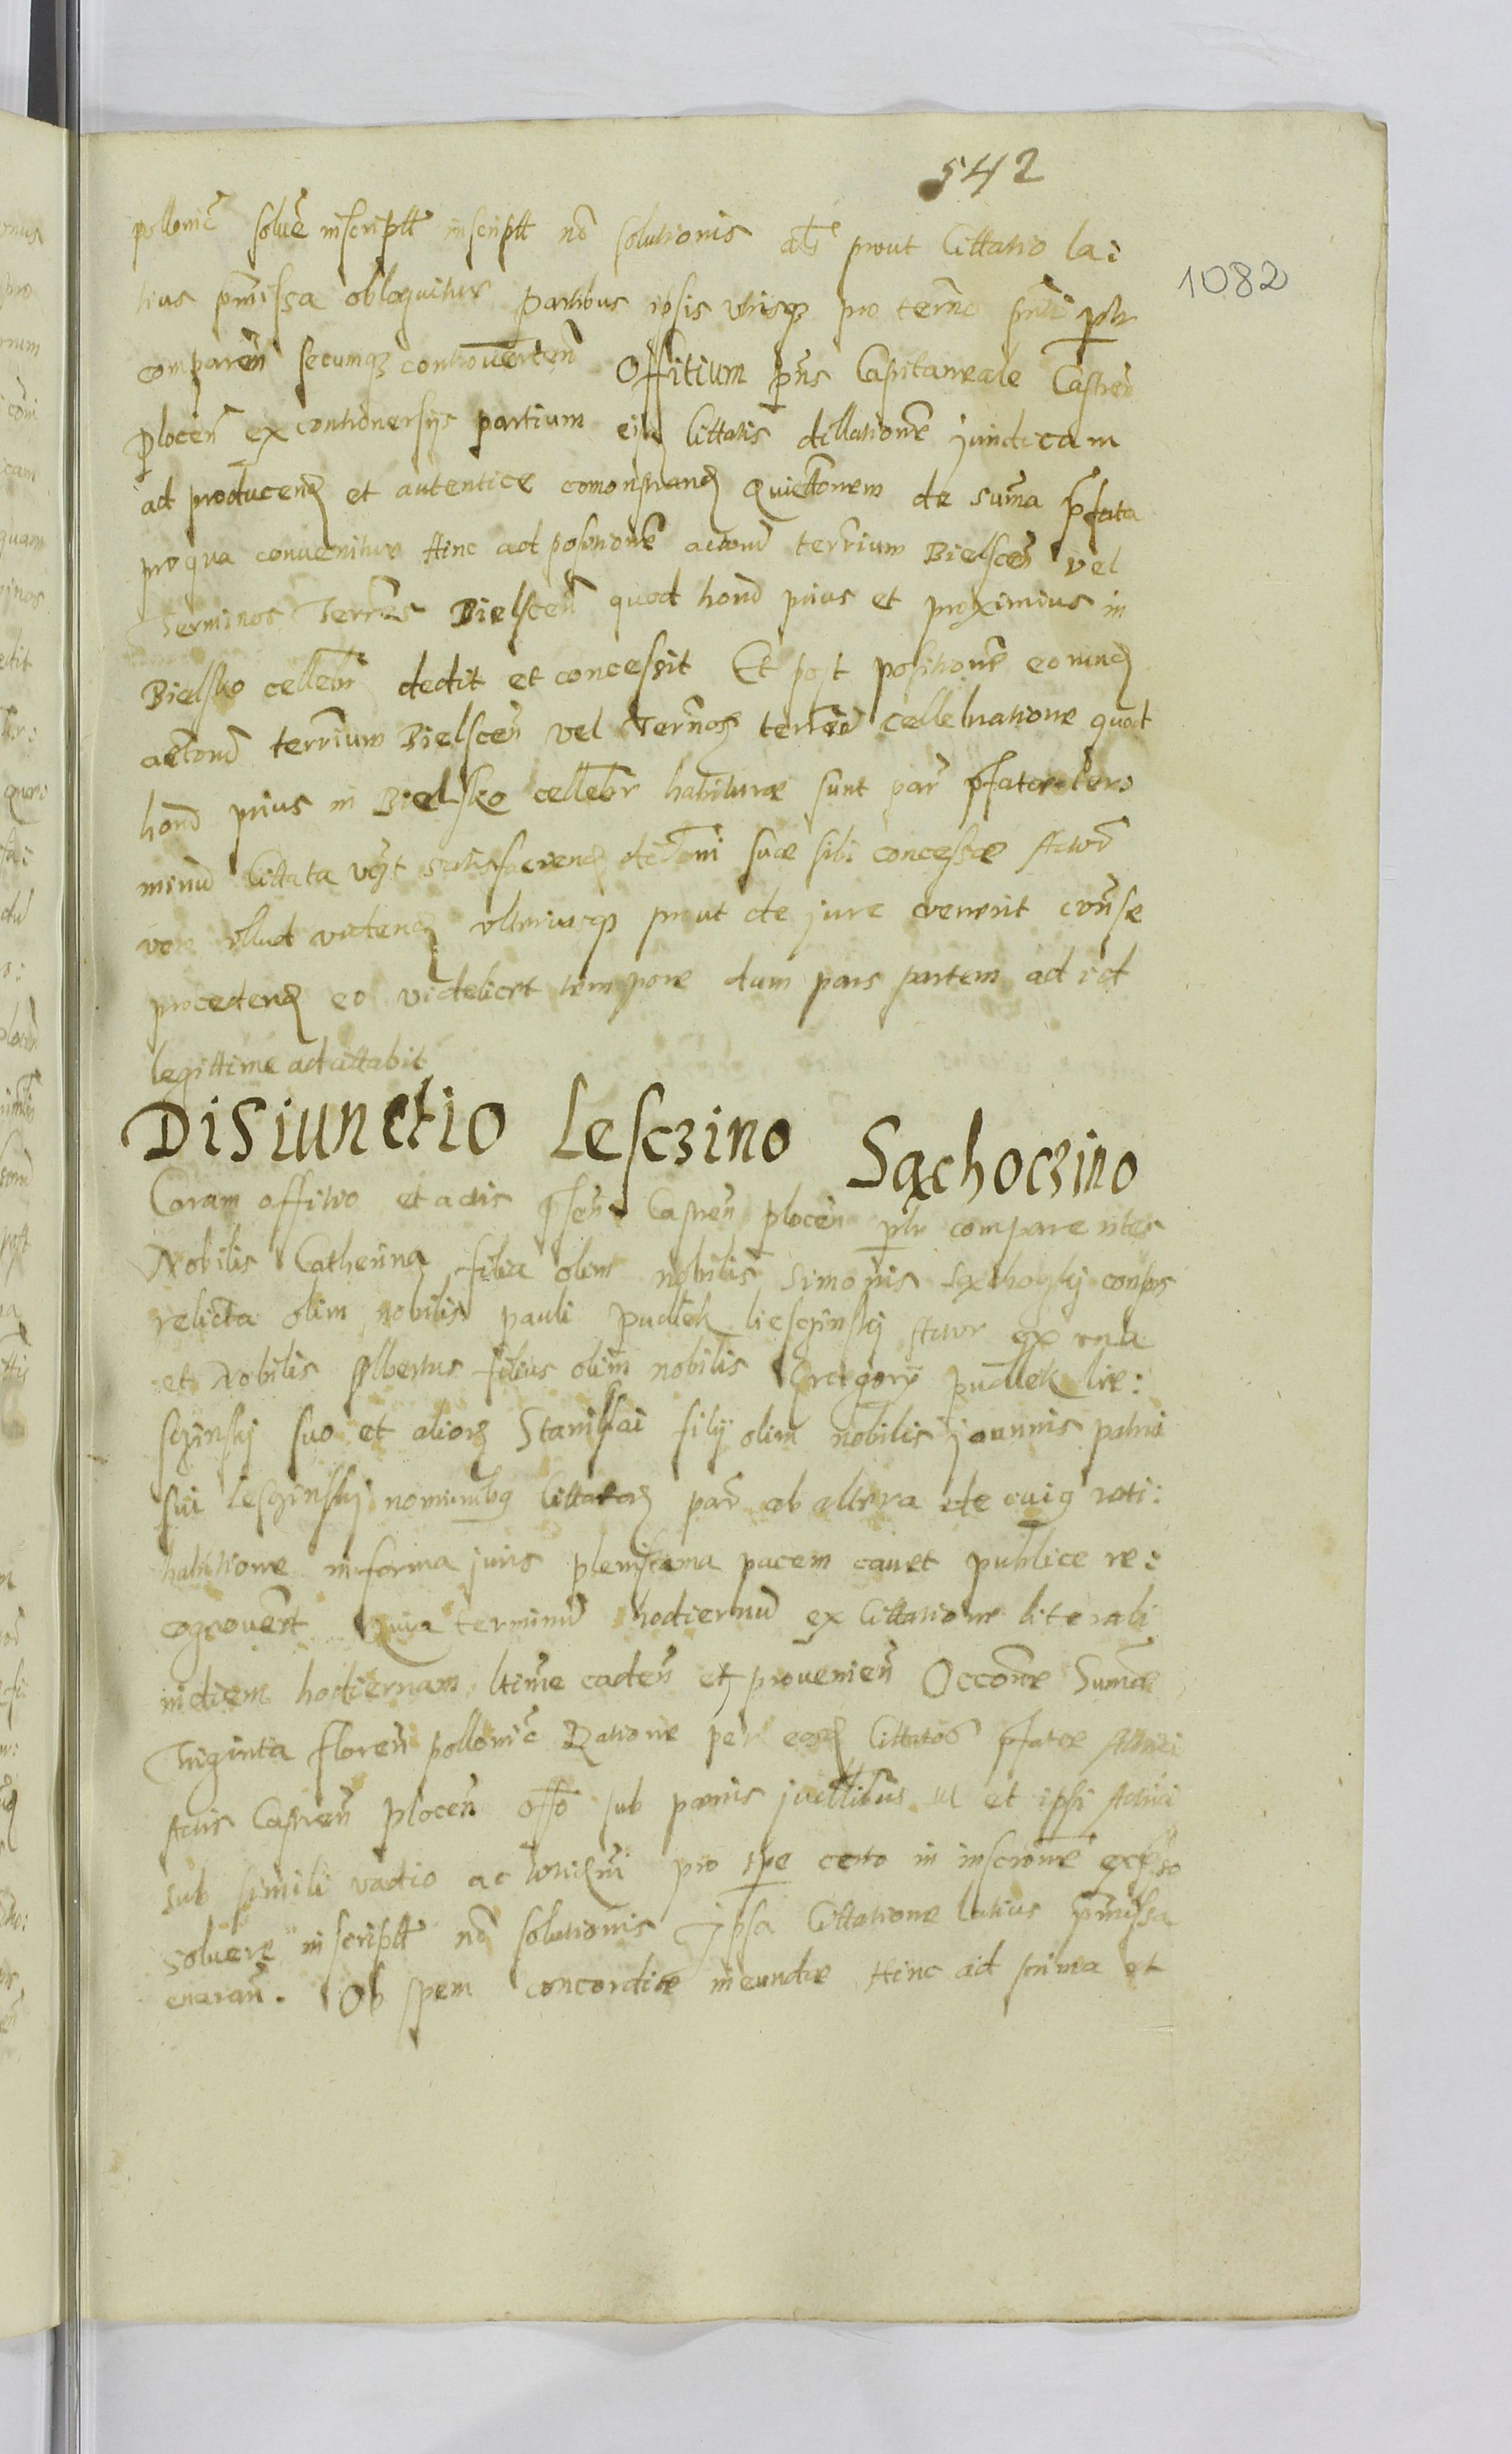 542
1082
pollonic̃ solue inscriptt inscriptt nõ solutionis als prout Cittatio la:
tius p̃missa obloquitur partibus ipsis utrisq3 pro termo sp̃nti p̃lr
comparen̄ secumq3 controuerten̄ Offitium p̃ns Capitaneale Castren̄
plocen̄ ex controuersijs partium eisd Cittatis dillatione juridicam
ad producend et autentice comonstrand Quiettonem de sum̃a p̃fata
pro qua conuenitur Hinc ad positione actorũ terrium Bielscen̄ vel
Terminos Terrẽs Bielscen̄ quod horũ prius et proximius in
Bielsko celebr dedit et concessit Et post positione eorund
actorũ terrium Bielscen̄ vel Termos terreõ cellebratione quod
horũ prius in Bielsko cellebr habiturae sunt par̃ p̃fatae ter
minũ Cittata vejt satisfaciend dillõni suae sibi concessae Actor
vero illud videnđ ulteriusq3 prout de jure venerit conse
procedend eo videlicet tempore dum pars partem ad id
legittime adcittabit
Disiunctio Lesczino Sąchoczino
Coram offitio et actis p̃sen̄ Castren̄ plocen̄ p̃lr comparentes
Nobilis Catherina filia olim nobilis Simonis Sąchoczkj consors
relicta olim nobilis pauli pudlek liesczinskj Actor ex una
et Nobilis Albertus filius olim nobilis Gregorij pudlek lie:
sczinskj suo et alior Stanislai filij olim nobilis joannis patrui
sui Lesczinskj nominibq Cittator par̃ ab altera de cuiq rati:
habitione in forma juris plenissima pacem cauet publice re:
cognouert Quia terminũ hodiernũ ex Cittatione literali
in diem hodiernam ltime caden̄ et prouenien̄ Occõne Sum̃ae
Triginta floren̄ pollonic̃ Ratione per eosd Cittatos p̃fatae Actrici
Actis Castren̄ plocen̄ offõ sub paenis juellibus ut et ipsi Actrici
sub simili vadio ac pro tpe certo in inscrõne exp̃so
soluere inscriptt nõ solutionis Ipsa Cittatione latius p̃missa
enaran̄. Ob spem concordiae ineundae Hinc ad prima et